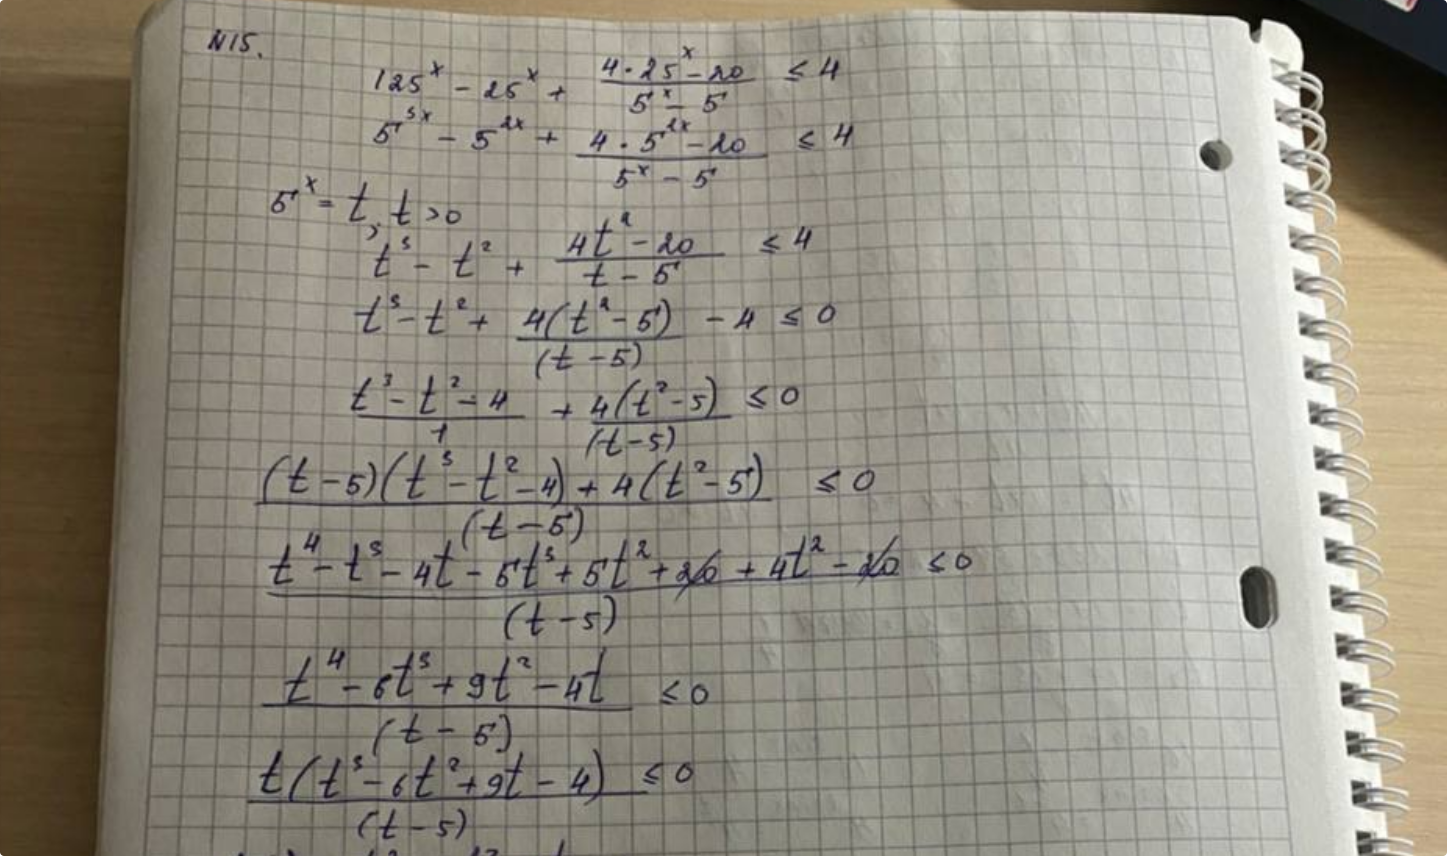 N15.
125^x - 25^x + (4·25^x - 20)/(5^x - 5) ≤ 4
5^3x - 5^2x + (4·5^2x - 20)/(5^x - 5) ≤ 4
5^x = t, t > 0
t^3 - t^2 + (4t^2 - 20)/(t - 5) ≤ 4
t^3 - t^2 + 4(t^2 - 5)/(t - 5) - 4 ≤ 0
(t^3 - t^2 - 4)/1 + 4(t^2 - 5)/(t - 5) ≤ 0
((t - 5)(t^3 - t^2 - 4) + 4(t^2 - 5))/(t - 5) ≤ 0
(t^4 - t^3 - 4t - 5t^3 + 5t^2 + 20 + 4t^2 - 20)/(t - 5) ≤ 0
(t^4 - 6t^3 + 9t^2 - 4t)/(t - 5) ≤ 0
t(t^3 - 6t^2 + 9t - 4)/(t - 5) ≤ 0